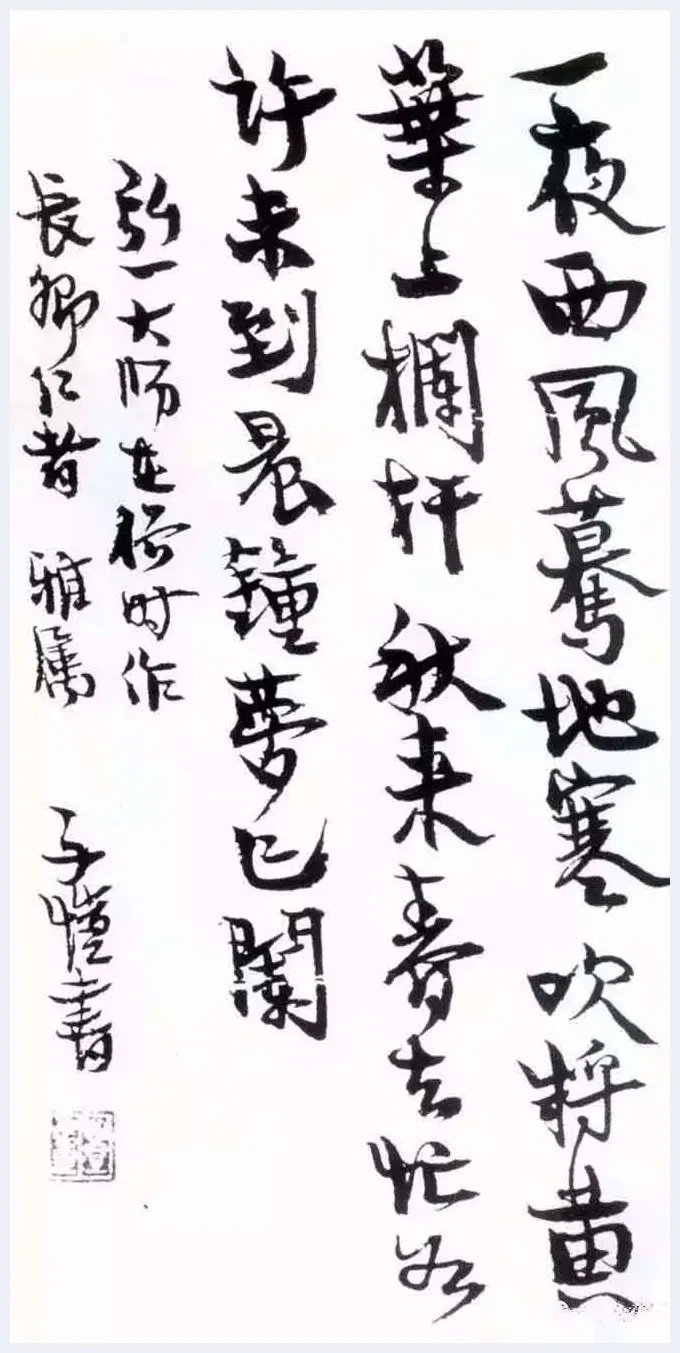 一夜西風驀地寒吹將黄
葉上欄杆秋来春去忙如
許未到晨鐘夢已闌
弘一大师在俗时作
長卿仁者 雅属 子愷書